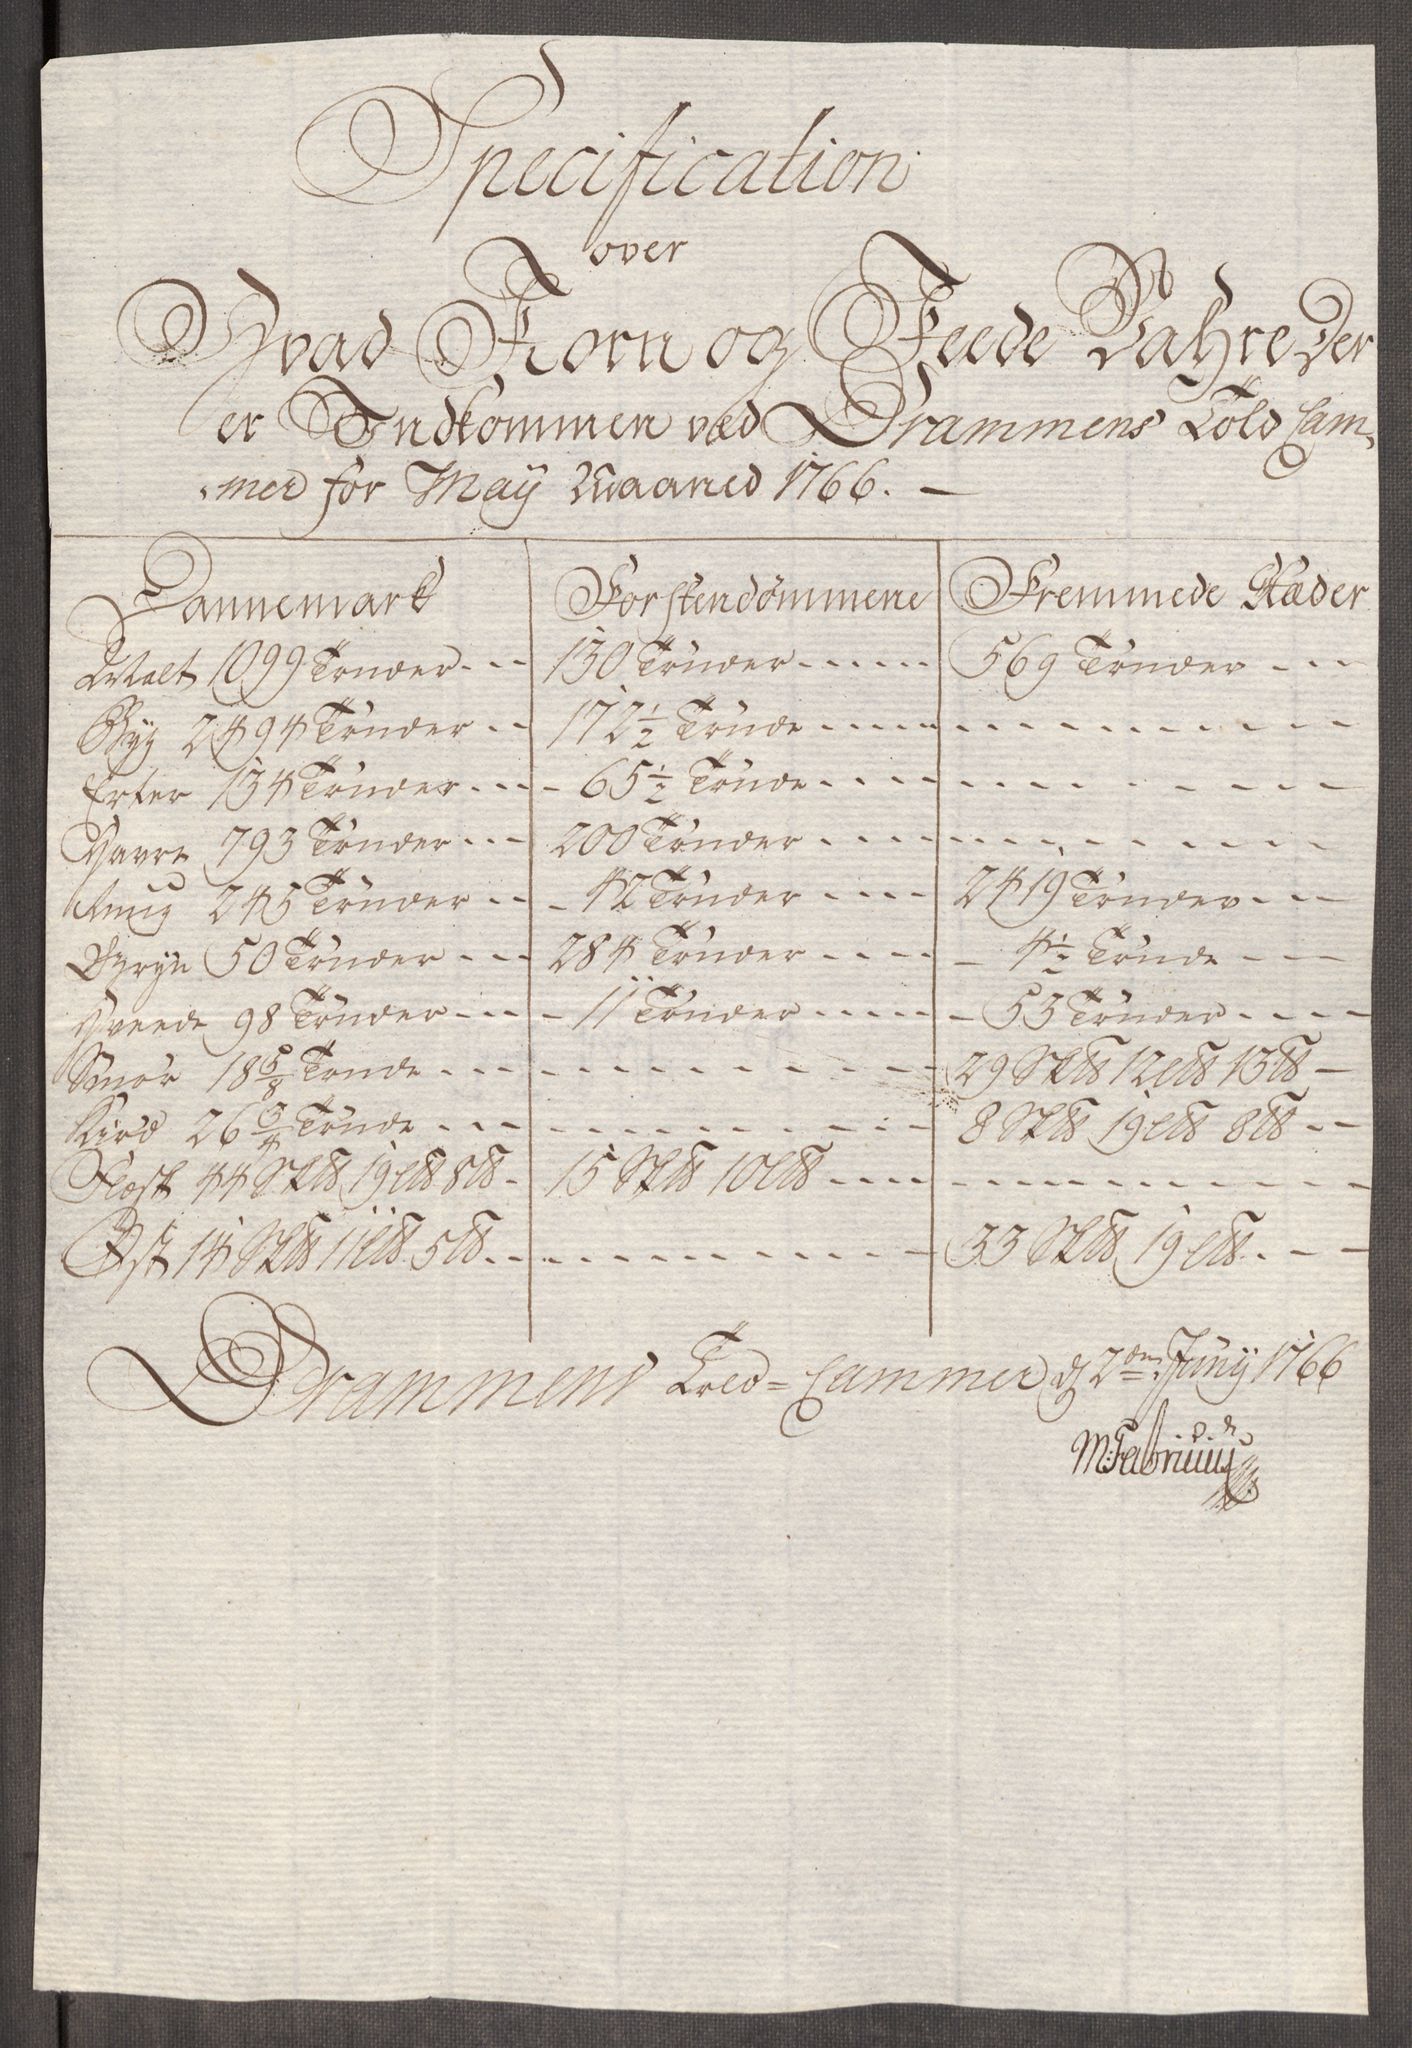 Specification
over
Hvad Korn og Feede Vahre Der
er Indkommen ved Drammens Told Cam-
mer for May Maaned 1766. —
Dannemark Forstendömmene Fremmede Stæder
Malt 1099 Tönder --- 130 Tönder ------ 569 Tönder ---
Byg 2494 Tönder -- 172 1/2 Tönde -----
Erter 134 Tönder --- - 65 1/2 Tönde ----
Havre 793 Tönder --- 200 Tönder ----
Rug 245 Tönder -- - 42 Tönder ---- 2419 Tönder ---
Gryn 50 Tönder --- 284 Tönder ---- - 4 1/2 Tönde ---
Hveede 98 Tönder --- - 11 Tönder ----- - 53 Tönder ----
Smör 18 5/8 Tönde --- 29 S℔ 12 L℔ 13 ℔ -
Kiöd 26 3/4 Tönde ---- 8 S℔ 19 L℔ 8 ℔ --
Flesk 44 S℔ 19 L℔ 8 ℔ - 15 S℔ 10 L℔ ----
Ost 14 S℔ 11 L℔ 5 ℔ -- 33 S℔ 19 L℔ ---
Drammens Told-Cammer d 2den Juny 1766
M: Fabritius